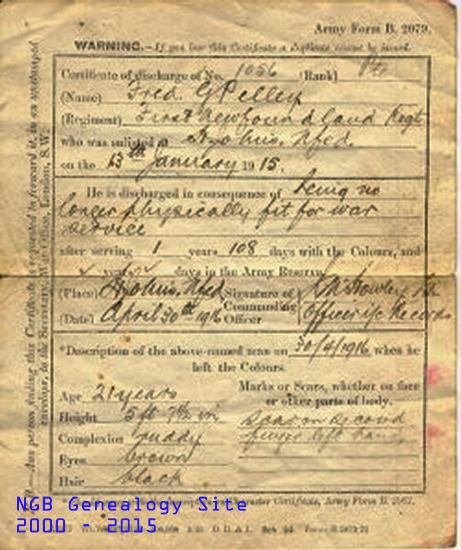 Army Form B. 2079.
WARNING.—If you lose this Certificate a duplicate cannot be issued.
Certificate of discharge of No. 1056 (Rank) Pte
(Name) Fred. G Pelley
(Regiment) First Newfoundland Regt
who was enlisted at St Johns, Nfld.
on the 13th January 1915.
He is discharged in consequence of being no
longer physically fit for war
service
after serving 1 years 108 days with the Colours, and
years days in the Army Reserve
(Place) St Johns, Nfld Signature of
Commanding
(Date) April 30th 1916 Officer Officer i/c Records
*Description of the above-named man on 30/4/1916 when he
left the Colours.
Age 21 years Marks or Scars, whether on face
or other parts of body.
Height 5 ft 7½ in scar on second
Complexion ruddy finger left hand
Eyes brown
Hair black
Character Certificate, Army Form B. 2067.
Any person finding this Certificate is requested to forward it, in an unstamped
envelope, to the Secretary, War Office, London, S.W.
NGB Genealogy Site
2000 - 2015